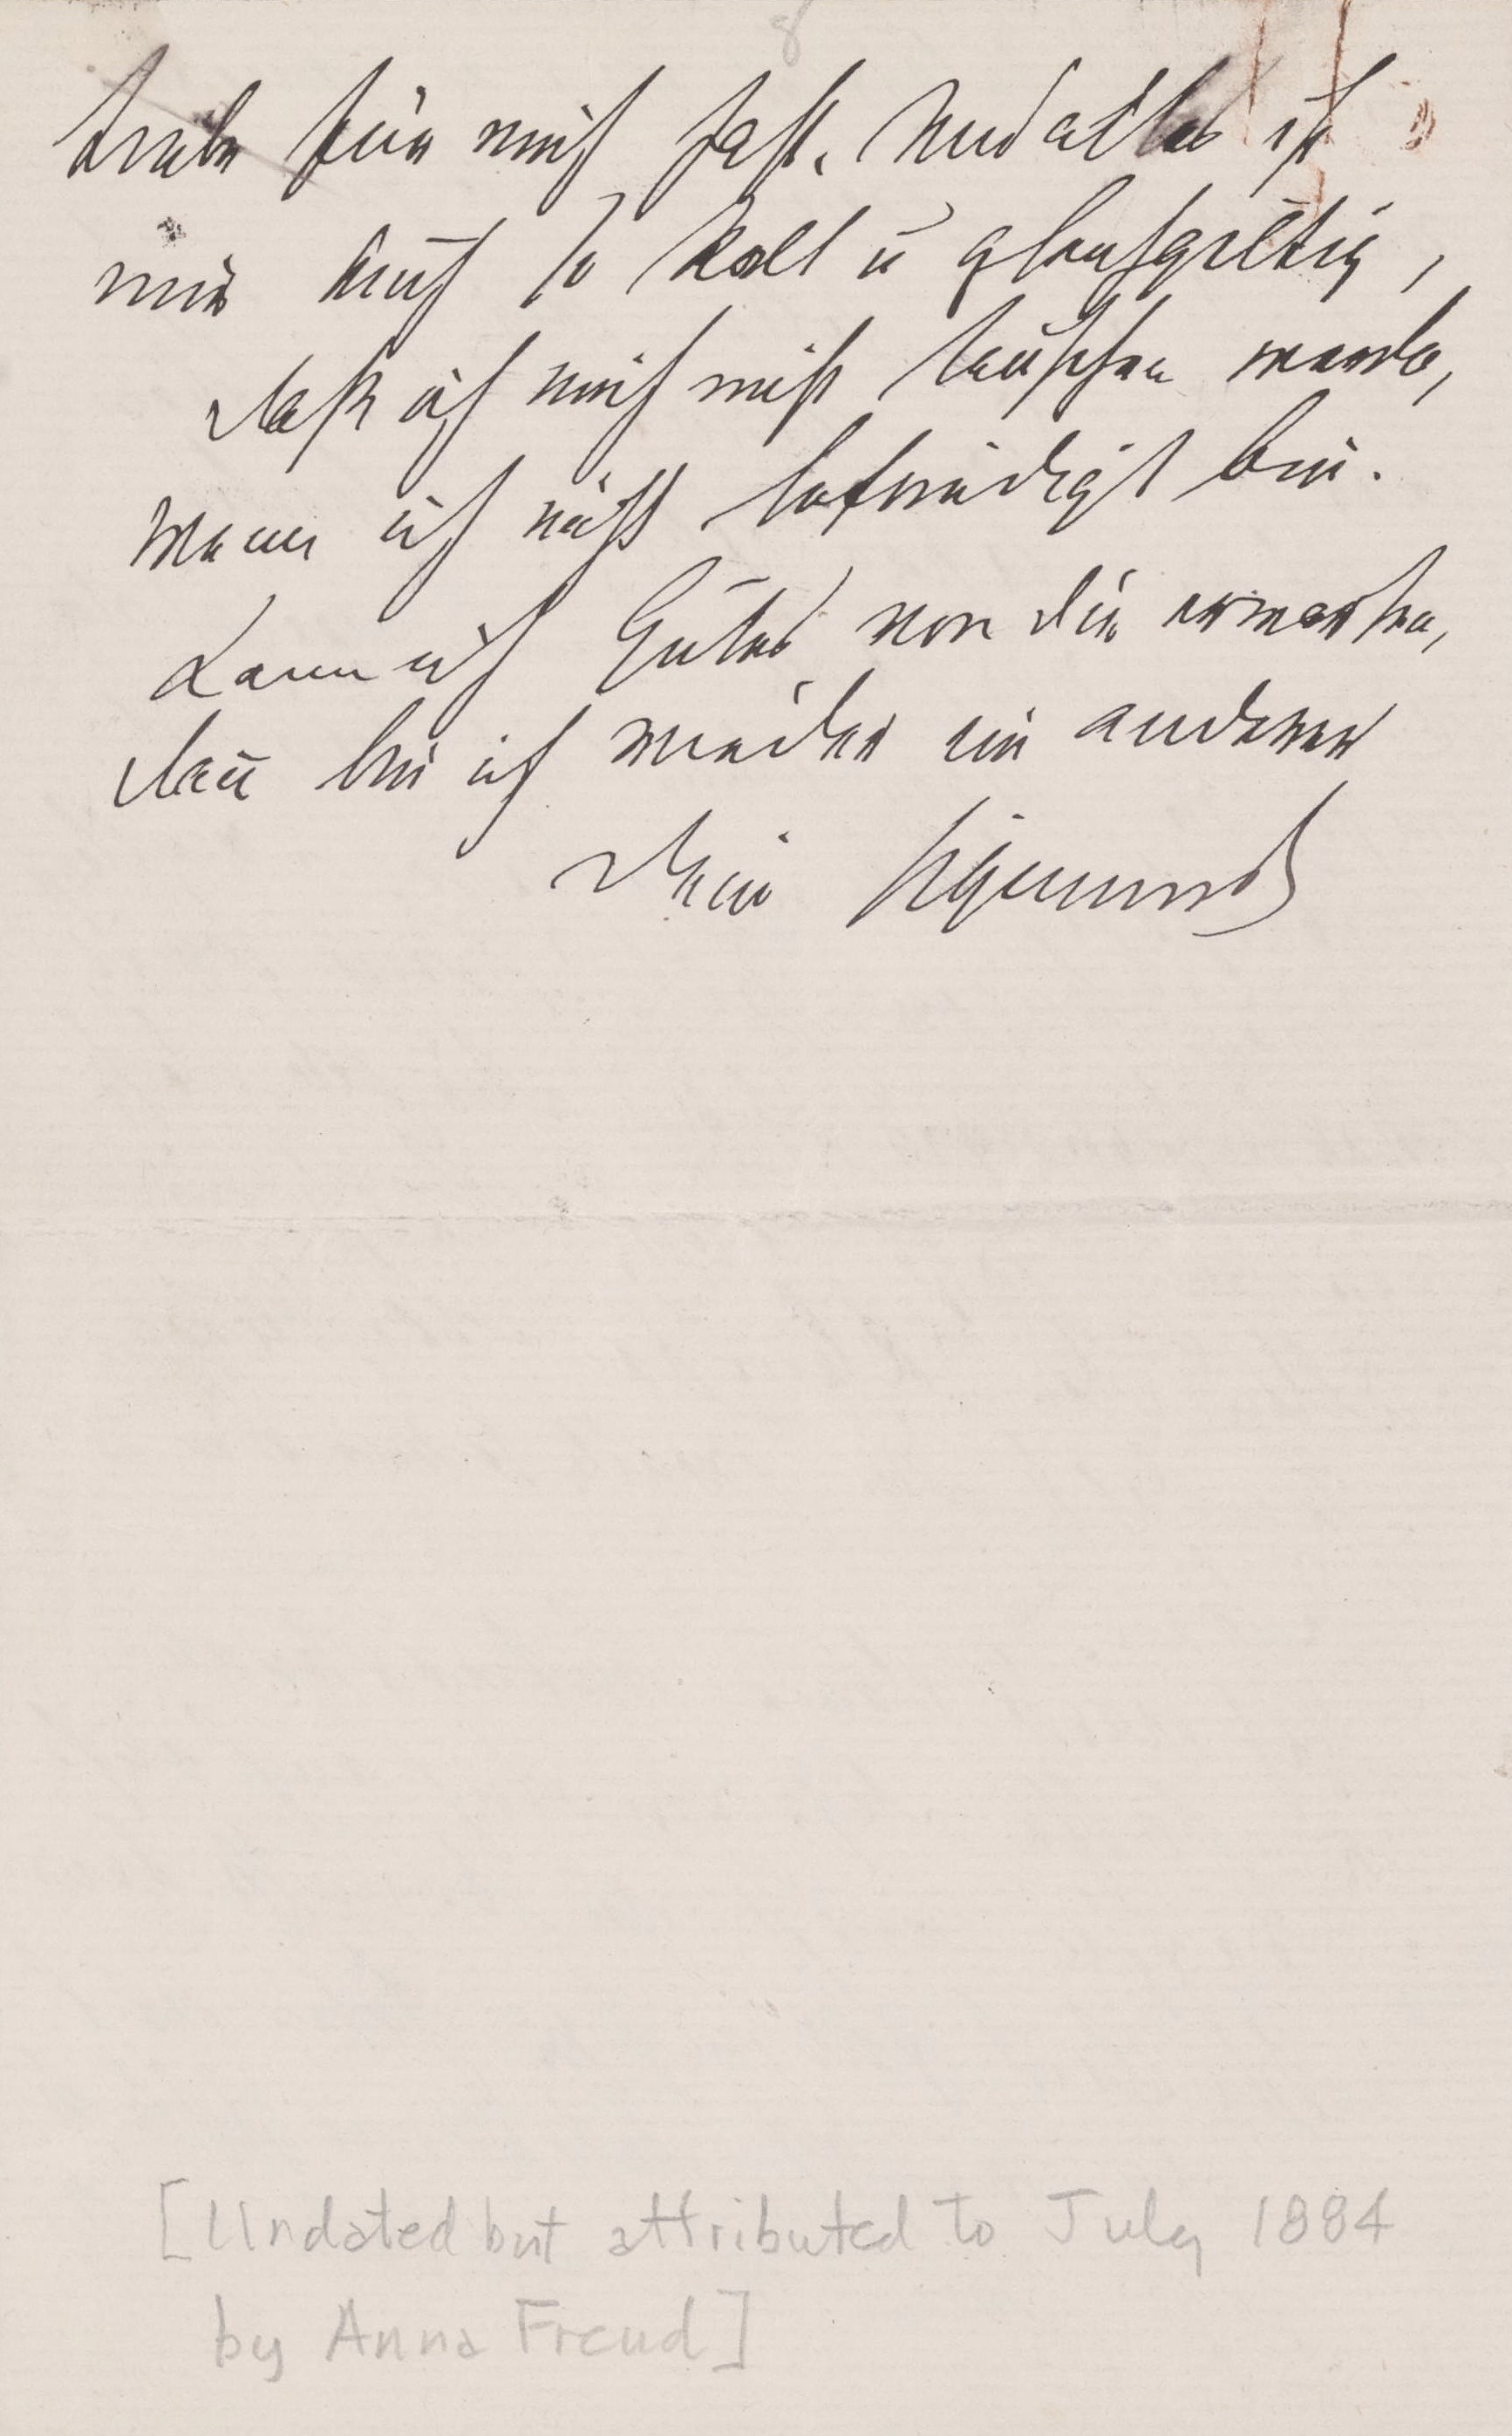 8
Liebe für mich hast. Und alles ist
mir auch so kalt u gleichgiltig,
daß ich mich nicht täuschen werde,
wenn ich nicht befriedigt bin.
Kann ich Gutes von dir erwarten,
dan̄ bin ich wieder ein anderer
Dein Sigmund
[Undated but attributed to July 1884
by Anna Freud]